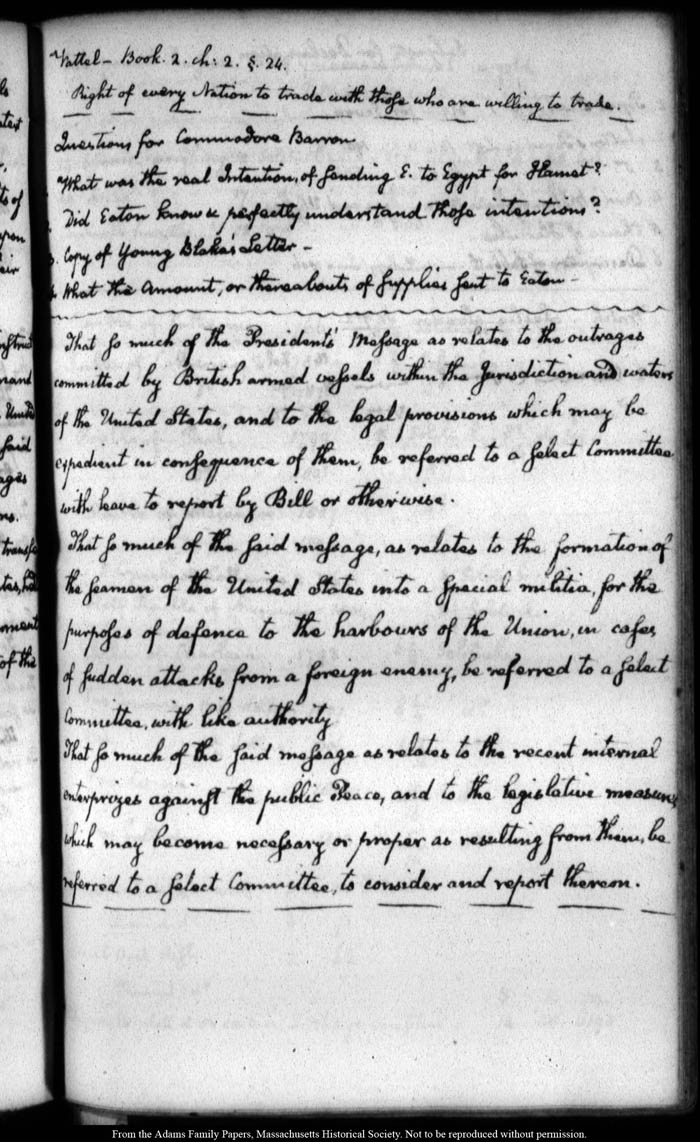 Vattel – Book. 2. ch: 2. §. 24.
Right of every Nation to trade with those who are willing to trade.
Questions for Commodore Barron
What was the real Intention, of sending E. to Egypt for Hamet?
Did Eaton know & perfectly understand those intentions?
3. Copy of Young Blake's Letter –
4. What the Amount, or thereabouts of supplies sent to Eaton –
That so much of the Presidents' Message as relates to the outrages
committed by British armed vessels within the Jurisdiction and waters
of the United States, and to the legal provisions which may be
expedient in consequence of them, be referred to a select Committee
with leave to report by Bill or otherwise.
That so much of the said message, as relates to the formation of
the seamen of the United States into a special militia, for the
purposes of defence to the harbours of the Union, in cases
of sudden attacks from a foreign enemy, be referred to a select
Committee, with like authority
That so much of the said message as relates to the recent internal
enterprizes against the public Peace, and to the legislative measures
which may become necessary or proper as resulting from them, be
referred to a select Committee, to consider and report thereon.
From the Adams Family Papers, Massachusetts Historical Society. Not to be reproduced without permission.